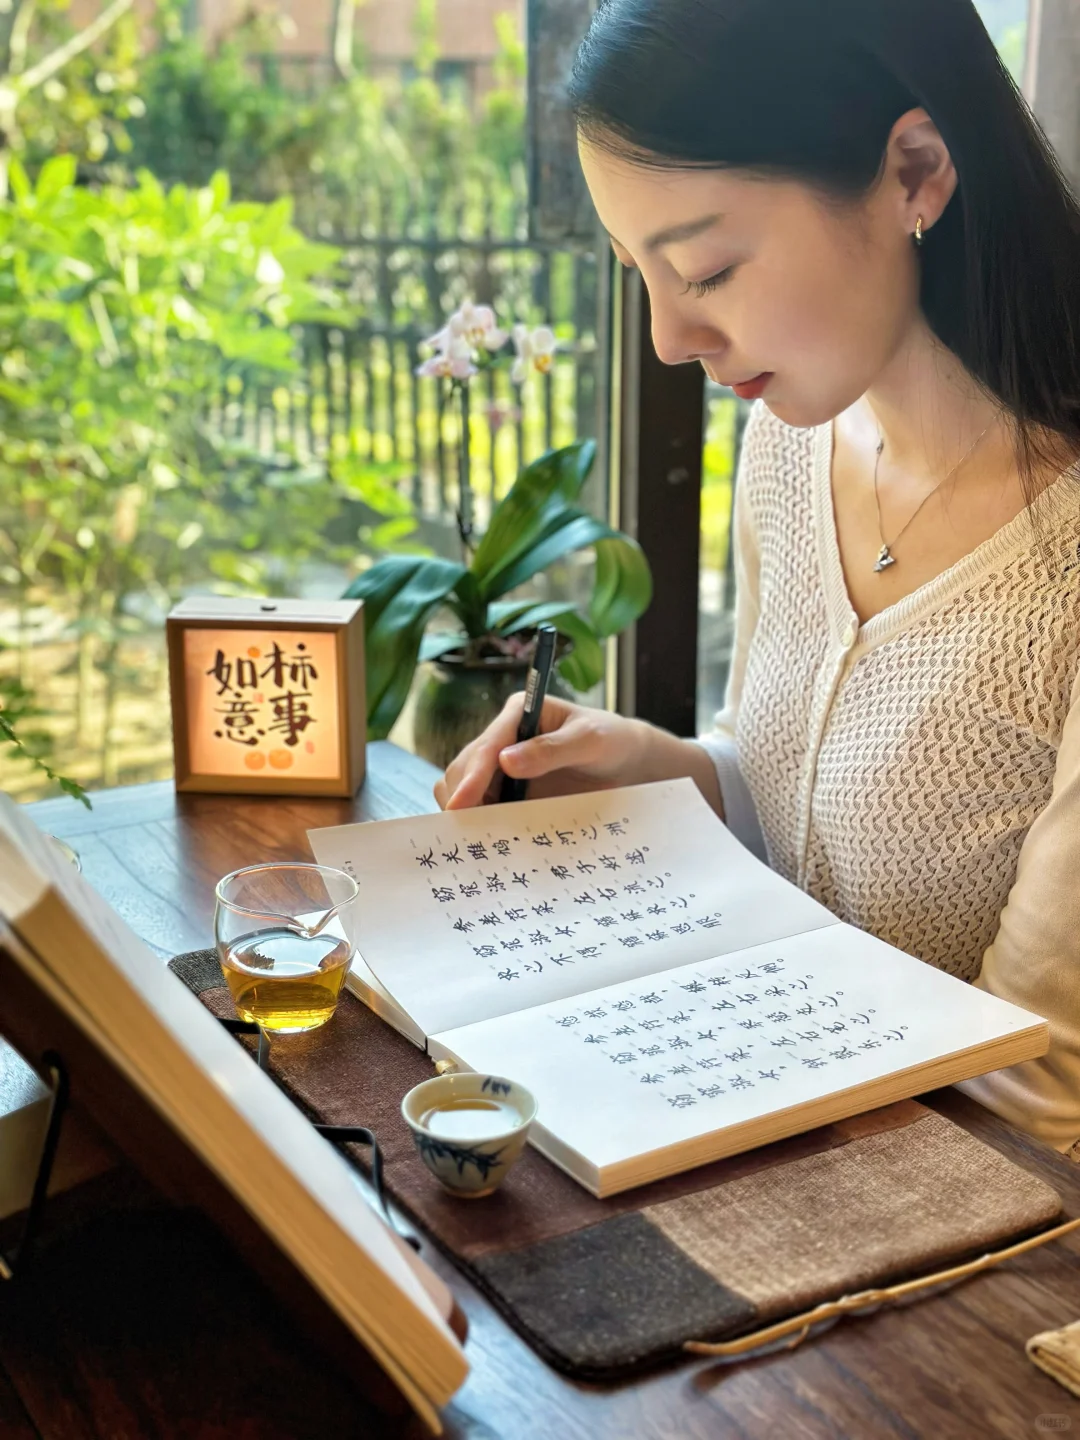 柿事
如意
关关雎鸠，在河之洲。
窈窕淑女，君子好逑。
参差荇菜，左右流之。
窈窕淑女，寤寐求之。
求之不得，寤寐思服。
悠哉悠哉，辗转反侧。
参差荇菜，左右采之。
窈窕淑女，琴瑟友之。
参差荇菜，左右芼之。
窈窕淑女，钟鼓乐之。
小红书